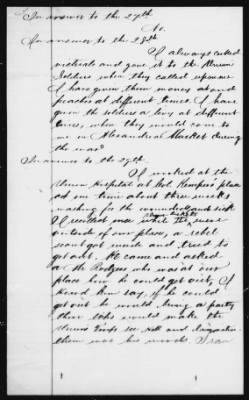 In answer to the 27th.
No.
In answer to the 28th
I always cooked
victuals and gave it to the Union
Soldiers when they called upon me
I have given them money and
peaches at different times. I have
given the soldiers a living at different
times, when they would come to
me in Alexandria Market during
the war.
In answer to the 29th.
I worked at the
Union Hospital at Col. Kemper's place
at one time about three weeks
washing for the wounded and sick
I recollect once while the were
outside of our place, a rebel
scout got inside and tried to
get out. He came and asked
a Mr Rodgers who was at our
place how he could get out, I
heard him say, if he could
get out he would bring a party
there who would make the
Union Troops see Hell and
them was his words. I ran